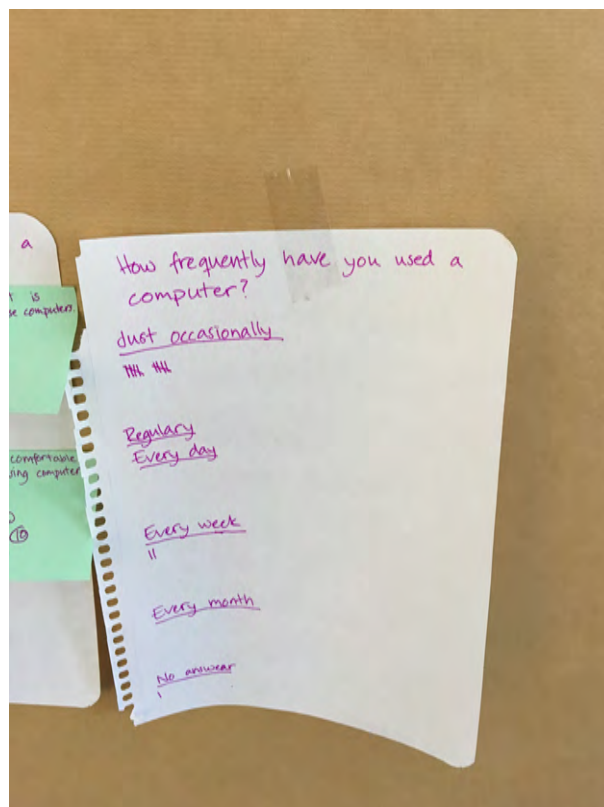 a
is
computers.
comfortable
computer
10
How frequently have you used a
computer?
dust occasionally
卌 卌
Regulary
Every day
Every week
||
Every month
No answear
|